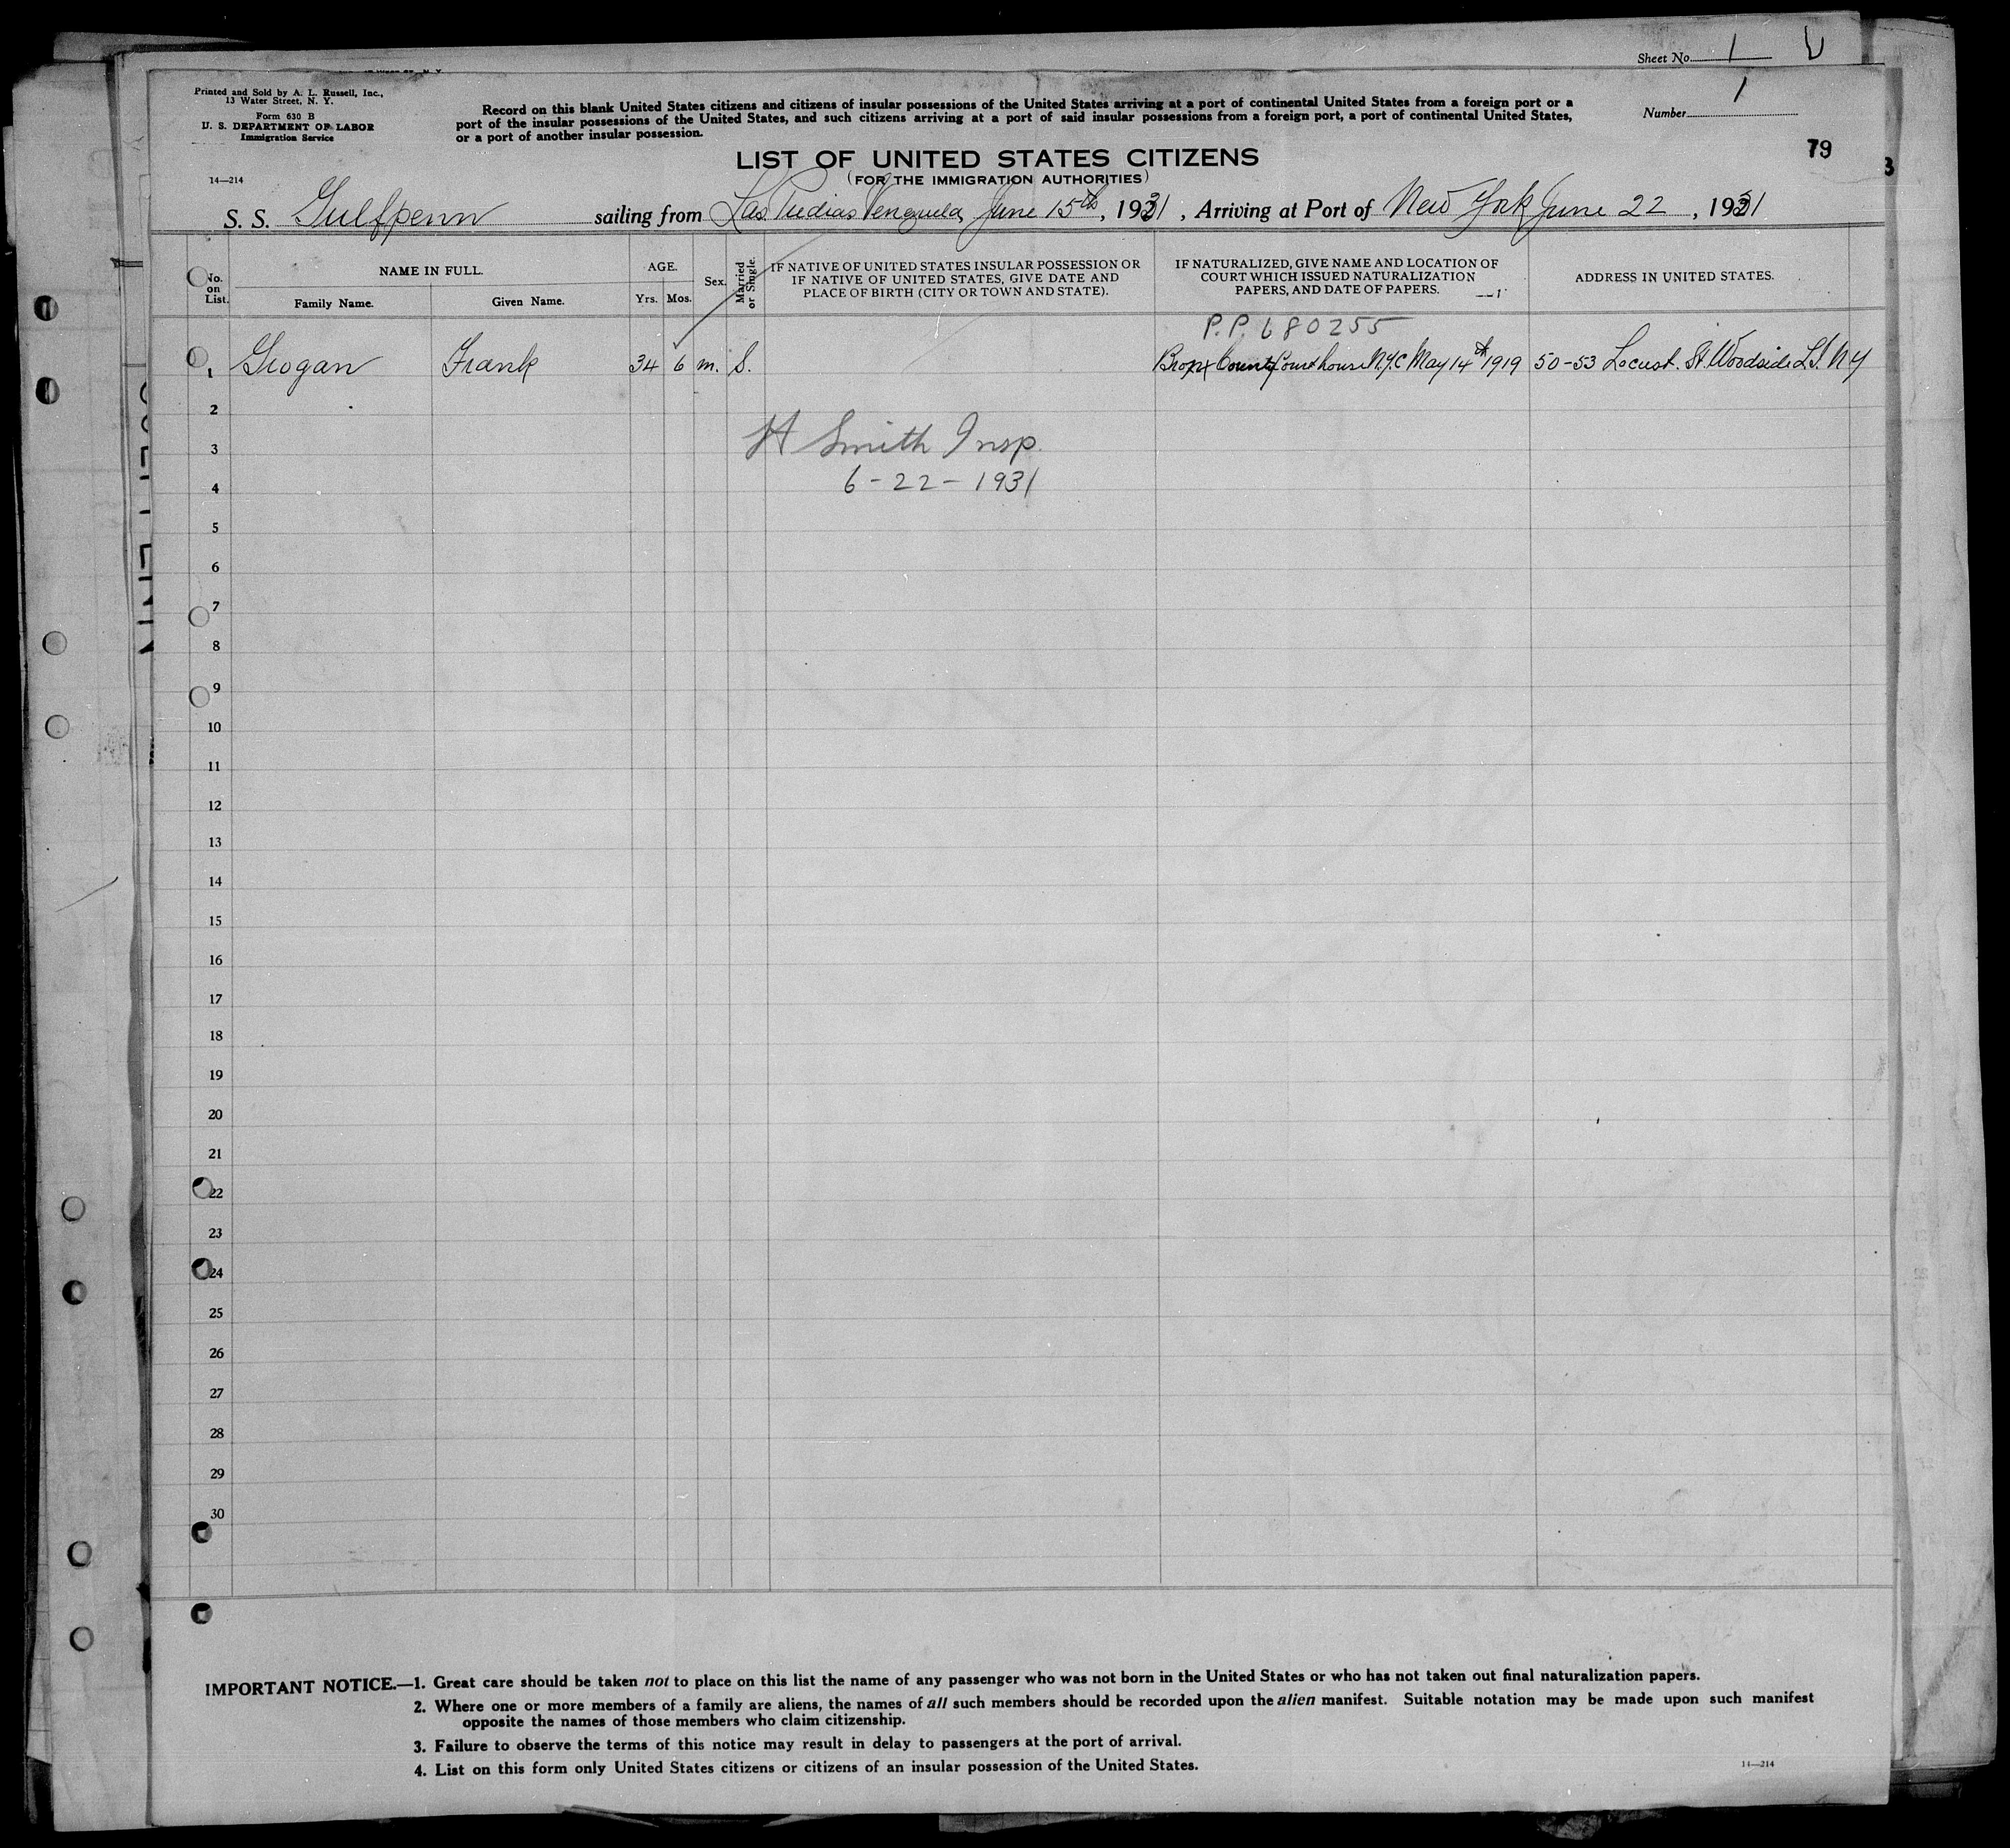 Sheet No. 1
Printed and Sold by A. L. Russell, Inc.,
13 Water Street, N. Y.
Form 630 B
U. S. DEPARTMENT OF LABOR
Immigration Service
Record on this blank United States citizens and citizens of insular possessions of the United States arriving at a port of continental United States from a foreign port or a
port of the insular possessions of the United States, and such citizens arriving at a port of said insular possessions from a foreign port, a port of continental United States,
or a port of another insular possession.
Number 1
79
LIST OF UNITED STATES CITIZENS
(FOR THE IMMIGRATION AUTHORITIES)
14—214
S. S. Gulfpenn sailing from Las Piedias Venezuela, June 15th, 1931, Arriving at Port of New York June 22, 1931
No. on List.
NAME IN FULL.
Family Name.
Given Name.
AGE.
Yrs. Mos.
Sex.
Married or Single.
IF NATIVE OF UNITED STATES INSULAR POSSESSION OR
IF NATIVE OF UNITED STATES, GIVE DATE AND
PLACE OF BIRTH (CITY OR TOWN AND STATE).
IF NATURALIZED, GIVE NAME AND LOCATION OF
COURT WHICH ISSUED NATURALIZATION
PAPERS, AND DATE OF PAPERS.
ADDRESS IN UNITED STATES.
P.P. 680255
1 Grogan Frank 34 6 m. S. Bronx County Courthouse N.Y.C May 14th 1919 50-53 Locust. St. Woodside L.I. NY
2
H Smith Insp.
3
6-22-1931
4
5
6
7
8
9
10
11
12
13
14
15
16
17
18
19
20
21
22
23
24
25
26
27
28
29
30
IMPORTANT NOTICE.—1. Great care should be taken not to place on this list the name of any passenger who was not born in the United States or who has not taken out final naturalization papers.
2. Where one or more members of a family are aliens, the names of all such members should be recorded upon the alien manifest. Suitable notation may be made upon such manifest
opposite the names of those members who claim citizenship.
3. Failure to observe the terms of this notice may result in delay to passengers at the port of arrival.
4. List on this form only United States citizens or citizens of an insular possession of the United States.
14—214